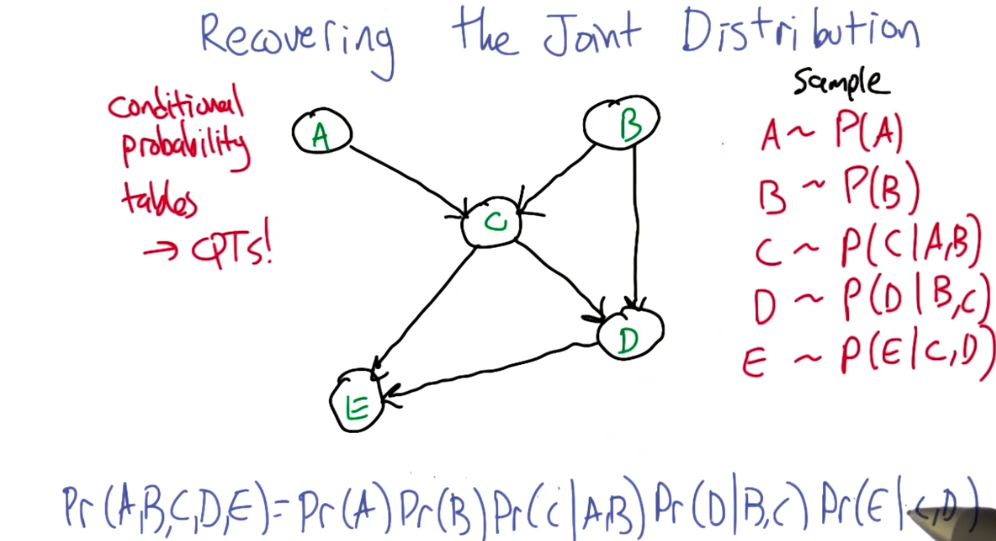 Recovering the Joint Distribution
conditional
probability
tables
→ CPTs!
A
B
C
D
E
Sample
A ~ P(A)
B ~ P(B)
C ~ P(C|A,B)
D ~ P(D|B,C)
E ~ P(E|C,D)
Pr(A,B,C,D,E)=Pr(A)Pr(B)Pr(C|A,B)Pr(D|B,C)Pr(E|C,D)